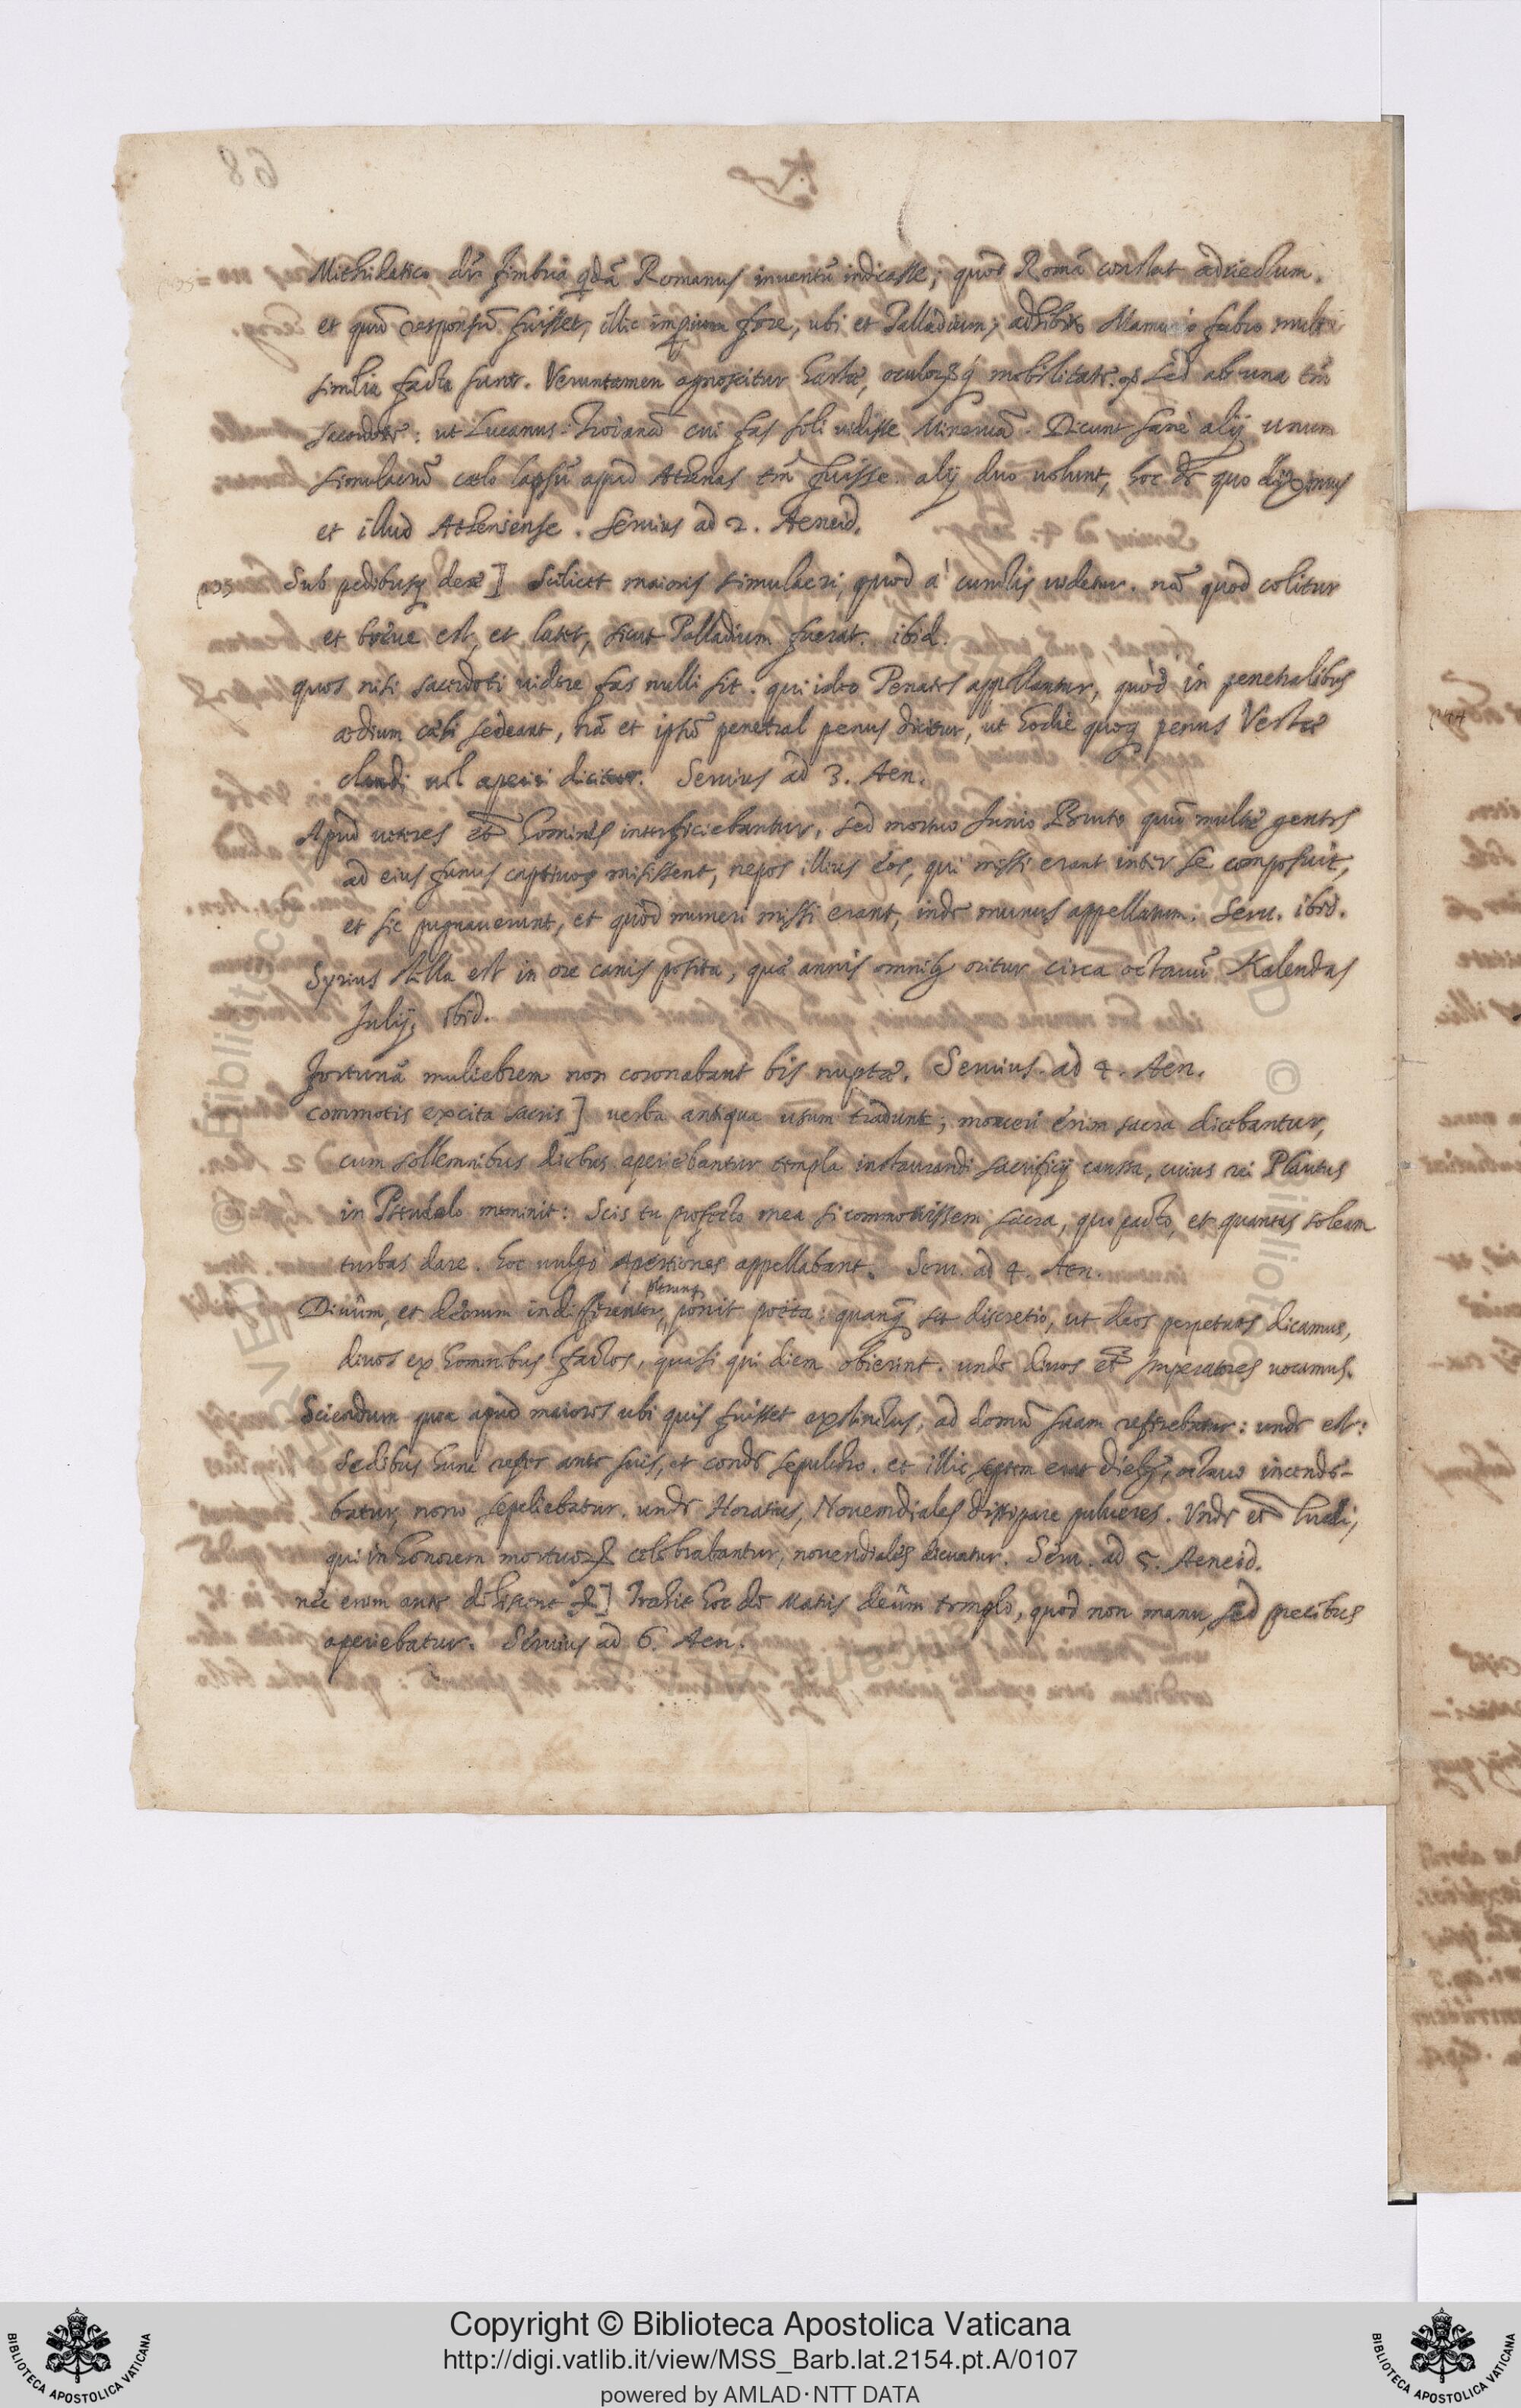 Mithridatico dr̄ Fimbria qdā Romanus inventū indicasse; quod Romā constat advectum.
et quū responsū fuisset, illic imperium fore, ubi et Palladium; adhibito Mamurio fabro multa
similia facta sunt. Veruntamen agnoscitur hasta, oculorūq; mobilitate. sed ab una tm̄
sacerdote: ut Lucanus: Troianā cui fas soli vidisse Minervā. Dicunt sane alij unum
simulacrū cœlo lapsū apud Athenas tm̄ fuisse alij duo volunt, hoc de quo diximus
et illud Atheniense. Servius ad 2. Aeneid.
Sub pedibusq deæ] Scilicet maioris simulacri, quod à cunctis videtur. nā quod colitur
et breve est, et latet, sicut Palladium fuerat. ibid.
quos nisi sacerdoti videre fas nulli sit. qui ideo Penates appellantur, quòd in penetralibus
ædium coli sedeant, nā et ipsū penetral penus dicitur, ut hodie quoq penus Vestæ
claudi vel aperiri dicitur. Servius ad 3. Aen.
Apud veteres et̄ homines interficiebantur, sed mortuo Junio Bruto quū multæ gentes
ad eius funus captivos misissent, nepos illius eos, qui missi erant inter se composuit,
et sic pugnaverunt, et quòd muneri missi erant, inde munus appellatum. Serv. ibid.
Syrius stella est in ore canis posita, quæ annis omnibꝫ oritur circa octavū Kalendas
Julij, ibid.
Fortunā muliebrem non coronabant bis nuptæ. Servius. ad 4. Aen.
commotis excita sacris] verba antiqua usum tradunt; moveri enim sacra dicebantur,
cum sollemnibus diebus aperiebantur templa instaurandi sacrificij caussa, cuius rei Plautus
in Pseudolo meminit: Scis tu profecto mea si commovissem sacra, quo pacto, et quantas soleam
turbas dare. hoc vulgo Apertiones appellabant. Serv. ad 4. Aen.
plerunq
Divûm, et deorum indifferenter, ponit poëta: quanq̄ sit discretio, ut deos perpetuos dicamus,
divos ex hominibus factos, quasi qui diem obierint. unde divos et̄ Imperatores vocamus.
Sciendum quia apud maiores ubi quis fuisset extinctus, ad domū suam referebatur: unde est:
Sedibus hunc refer ante suis, et conde sepulchro. et illic septem erat diebꝫ, octavo incende-
batur, nono sepeliebatur. unde Horatius, Novemdiales dissipare pulveres. Unde et̄ ludi,
qui in honorem mortuorꝫ celebrabantur, novendiales dicuntur. Serv. ad 5. Aeneid.
nec enim ante dehiscent &] Traxit hoc de Matris deûm templo, quod non manu, sed precibus
aperiebatur. Servius ad 6. Aen.
Copyright © Biblioteca Apostolica Vaticana
http://digi.vatlib.it/view/MSS_Barb.lat.2154.pt.A/0107
powered by AMLAD·NTT DATA
BIBLIOTECA APOSTOLICA VATICANA
BIBLIOTECA APOSTOLICA VATICANA